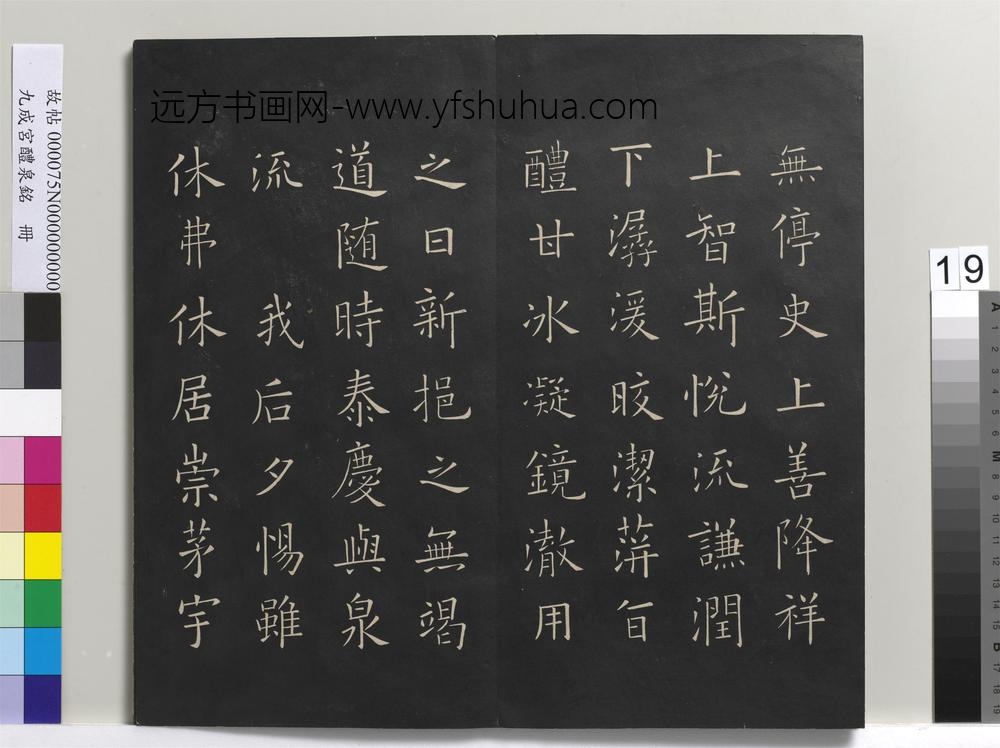 远方书画网-www.yfshuhua.com
無停史上善降祥
上智斯悅流謙潤
下潺湲皎潔蓱旨
醴甘冰凝鏡澈用
之日新挹之無竭
道随時泰慶與泉
流 我后夕惕雖
休弗休居崇茅宇
故帖 000075N000000000
九成宮醴泉銘 冊
19